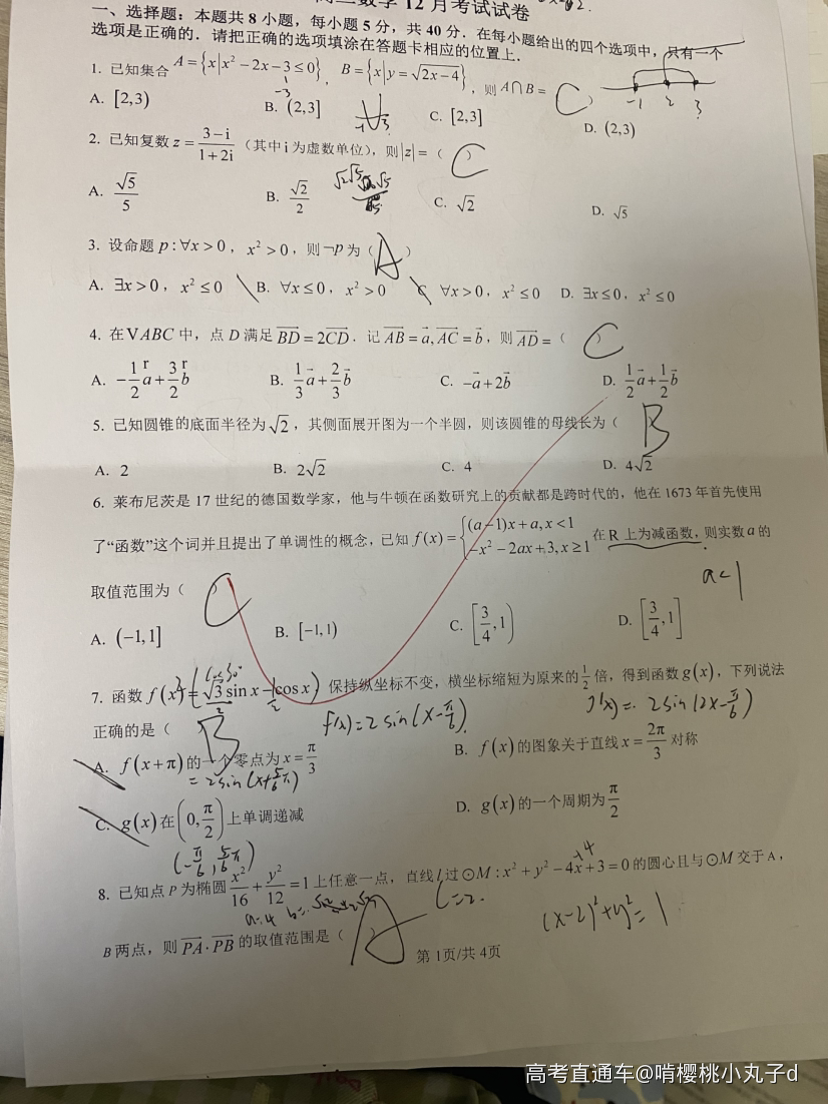 高三数学12月考试试卷
一、选择题：本题共8小题，每小题5分，共40分．在每小题给出的四个选项中，只有一个
选项是正确的．请把正确的选项填涂在答题卡相应的位置上．
1. 已知集合 A={x|x²−2x−3≤0}，B={x|y=√(2x−4)}，则 A∩B=（ C ）
-3
1
-1 3
-1 2 3
A. [2,3) B. (2,3] C. [2,3] D. (2,3)
2. 已知复数 z=(3−i)/(1+2i)（其中i为虚数单位），则|z|=（ C ）
A. √5/5 B. √2/2 C. √2 D. √5
3. 设命题 p:∀x>0，x²>0，则¬p为（ A ）
A. ∃x>0，x²≤0 B. ∀x≤0，x²>0 C. ∀x>0，x²≤0 D. ∃x≤0，x²≤0
4. 在VABC中，点D满足BD=2CD．记AB=a,AC=b，则AD=（ C ）
A. −1/2 a+3/2 b B. 1/3 a+2/3 b C. −a+2b D. 1/2 a+1/2 b
5. 已知圆锥的底面半径为√2，其侧面展开图为一个半圆，则该圆锥的母线长为（ B
A. 2 B. 2√2 C. 4 D. 4√2
6. 莱布尼茨是17世纪的德国数学家，他与牛顿在函数研究上的贡献都是跨时代的，他在1673年首先使用
了“函数”这个词并且提出了单调性的概念，已知 f(x)={(a−1)x+a,x<1 −x²−2ax+3,x≥1 在R上为减函数，则实数a的
a<1
取值范围为（ C
A. (−1,1] B. [−1,1) C. [3/4,1) D. [3/4,1]
7. 函数 f(x)=√3sin x−cos x 保持纵坐标不变，横坐标缩短为原来的1/2倍，得到函数g(x)，下列说法
f(x)=2sin(x-π/6). g(x)=2sin(2x-π/6)
正确的是（ B
A. f(x+π)的一个零点为x=π/3 B. f(x)的图象关于直线x=2π/3对称
=2sin(x+5/6π)
C. g(x)在(0,π/2)上单调递减 D. g(x)的一个周期为π/2
(-π/6, 5/6π)
8. 已知点P为椭圆x²/16+y²/12=1上任意一点，直线l过⊙M:x²+y²−4x+3=0的圆心且与⊙M交于A，
+4
a=4
C=2.
(x-2)²+y²=1
B两点，则PA·PB的取值范围是（ A ）
第1页/共4页
高考直通车@啃樱桃小丸子d